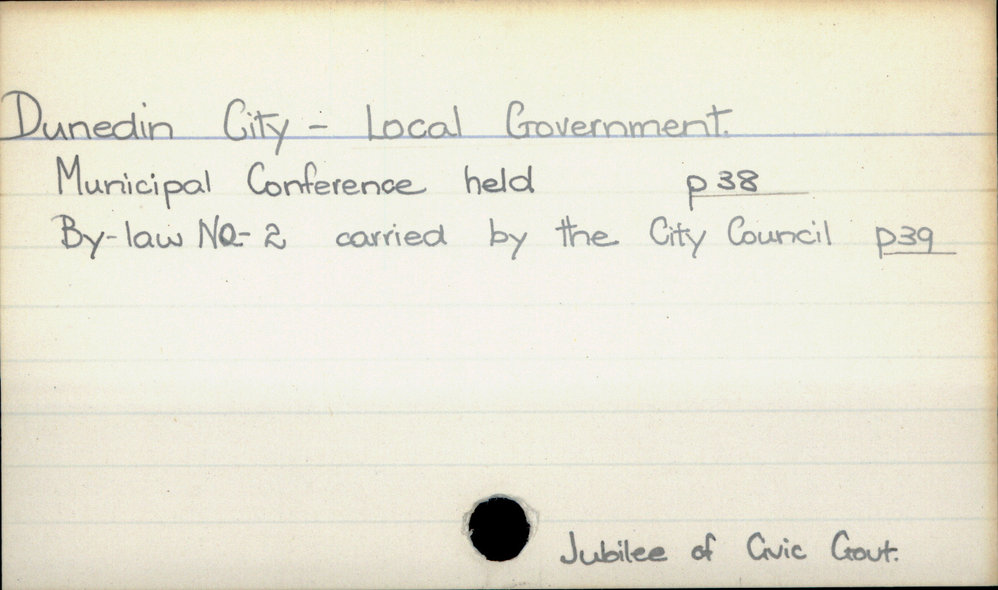 Dunedin City - Local Government.
Municipal Conference held p38
By-law No-2 carried by the City Council p39
Jubilee of Civic Govt.